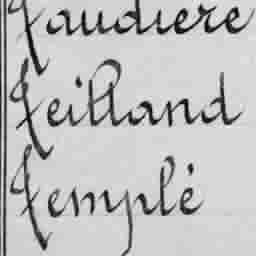 Taudiere
Teilland
Templé